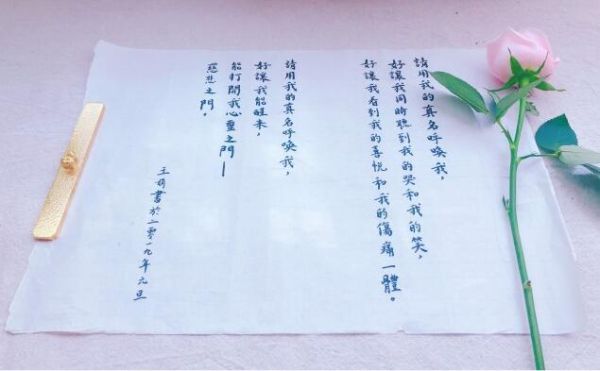 請用我的真名呼喚我，
好讓我同時聽到我的哭和我的笑，
好讓我看到我的喜悅和我的傷痛一體。
請用我的真名呼喚我，
好讓我能醒來，
能打開我心靈之門——
慈悲之門。
王 書於二零一九年元旦